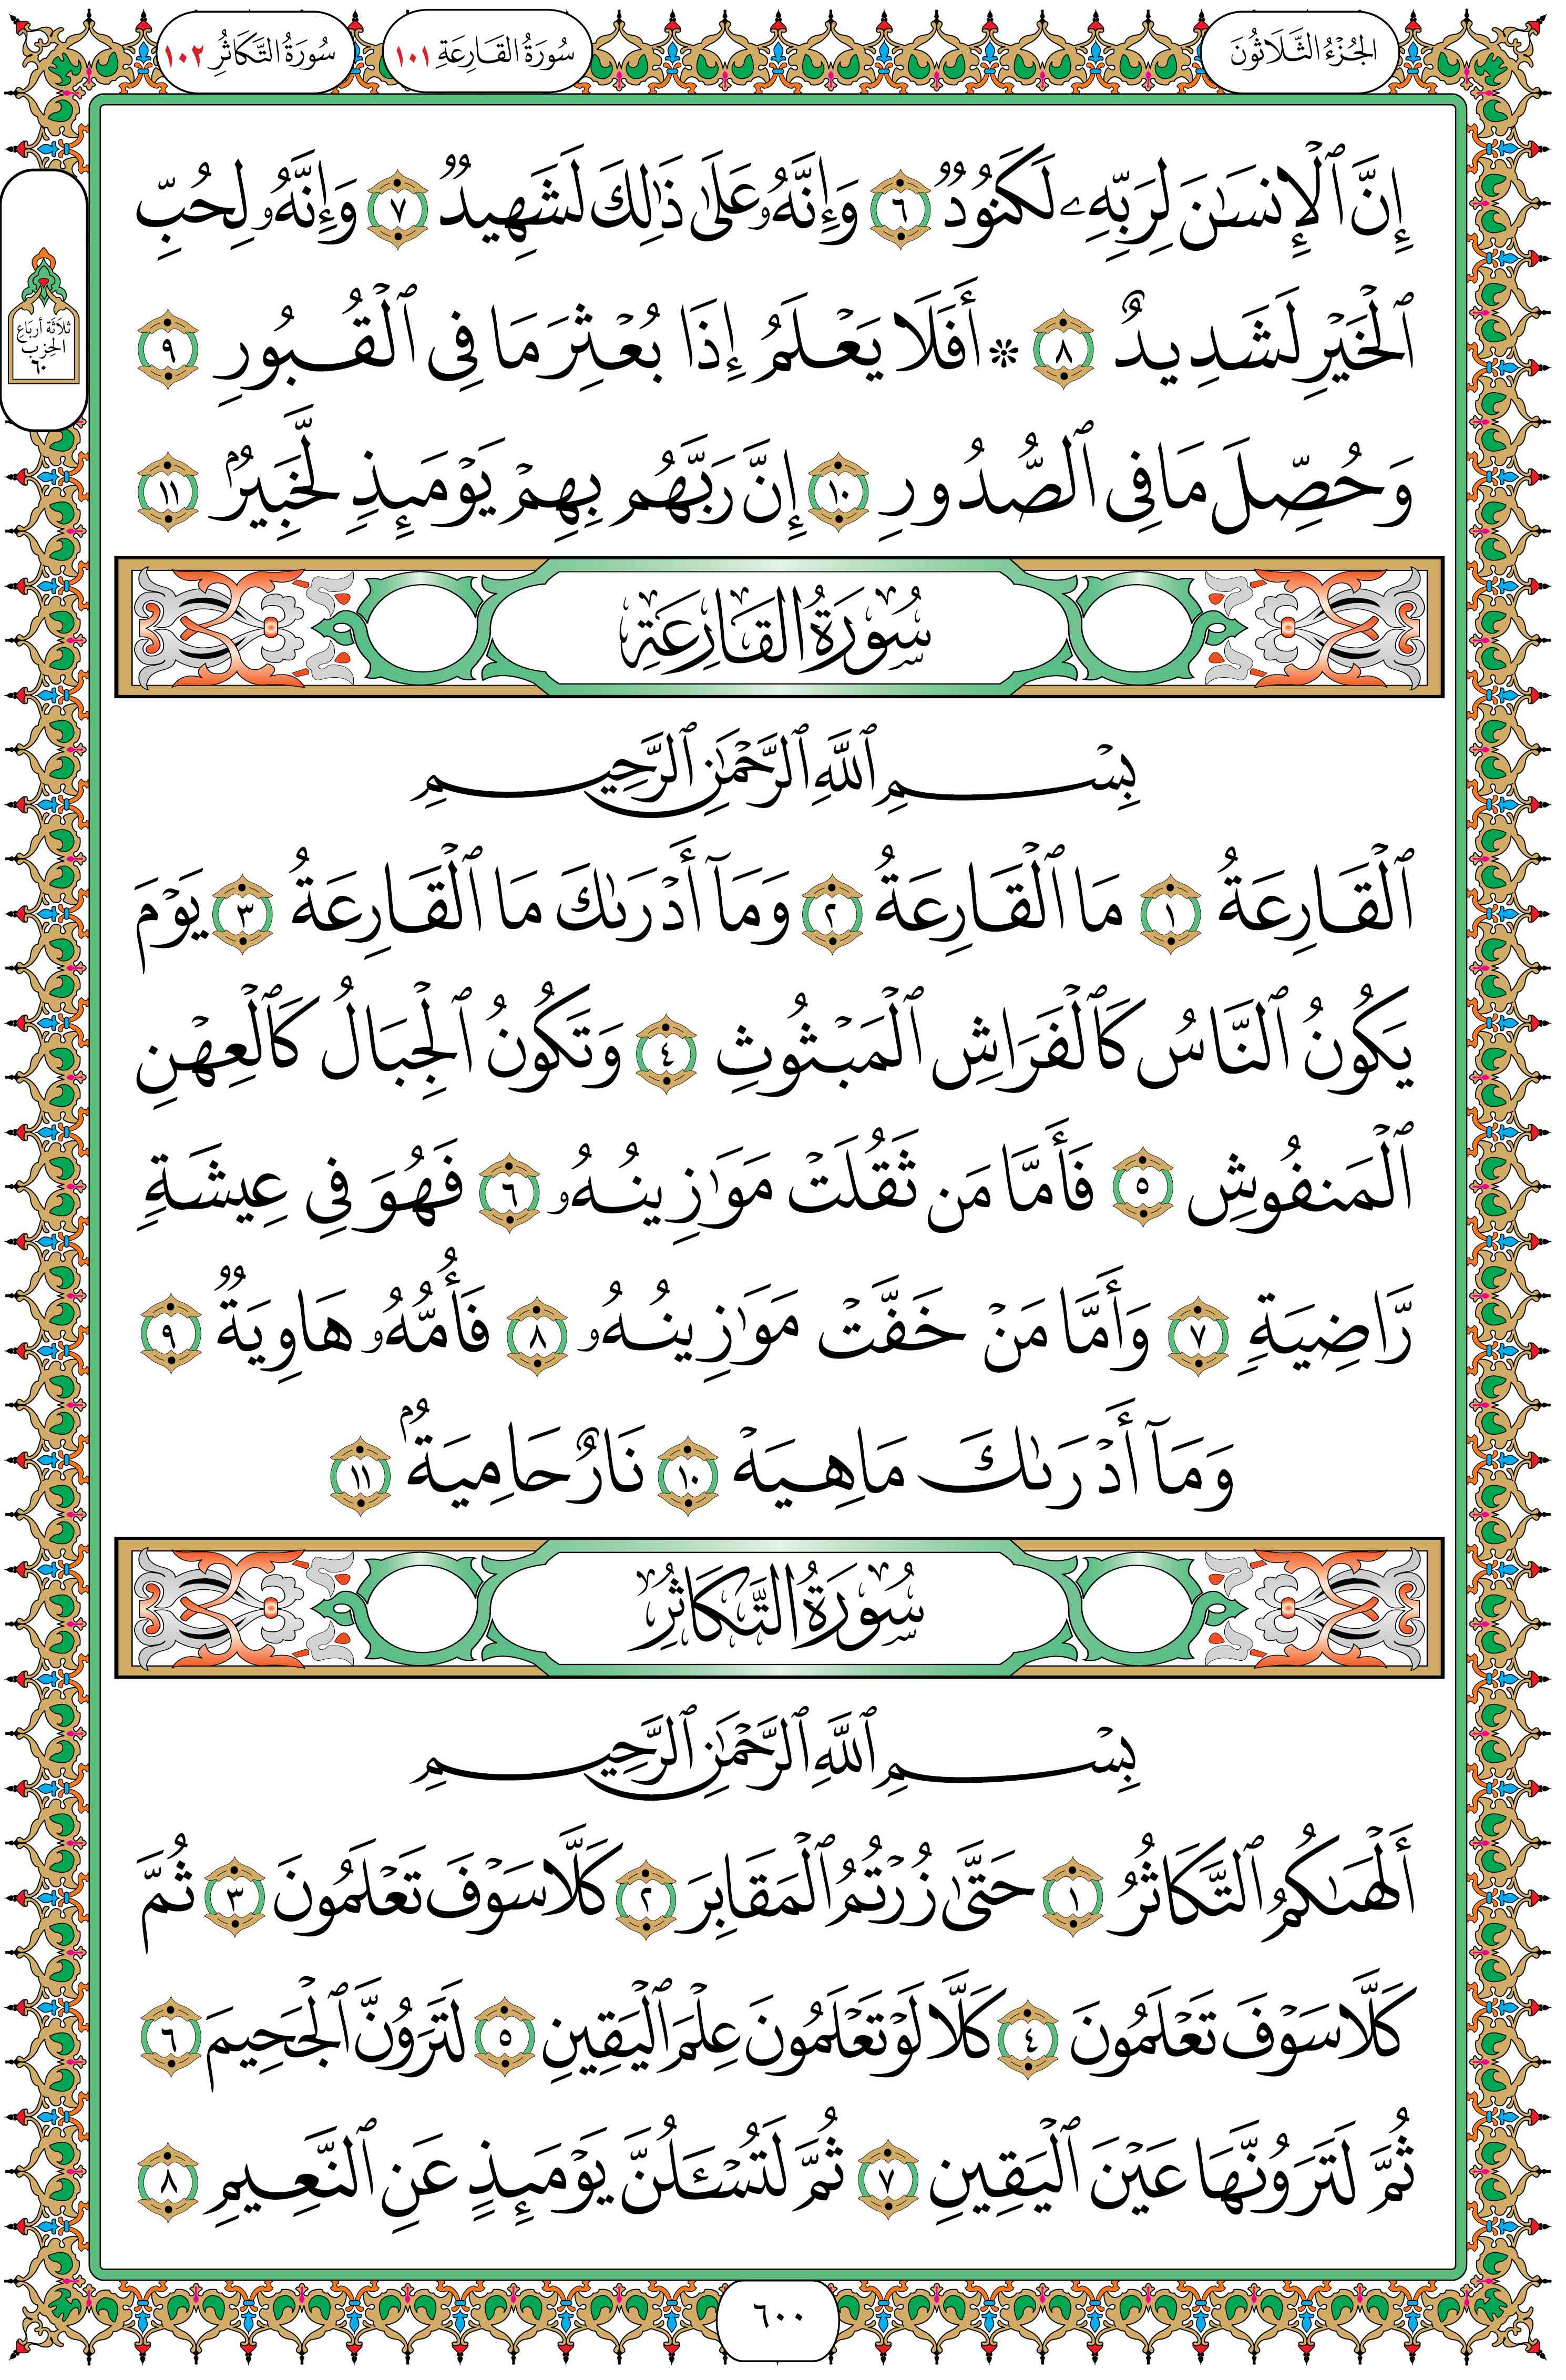 الجُزْءُ الثَّلَاثُونَ
سُورَةُ القَارِعَةِ ١٠١
سُورَةُ التَّكَاثُرِ ١٠٢
إِنَّ ٱلْإِنسَٰنَ لِرَبِّهِۦ لَكَنُودٌ ٦ وَإِنَّهُۥ عَلَىٰ ذَٰلِكَ لَشَهِيدٌ ٧ وَإِنَّهُۥ لِحُبِّ
ثلاثة أرباع
الحزب
٦٠
ٱلْخَيْرِ لَشَدِيدٌ ٨ ۞ أَفَلَا يَعْلَمُ إِذَا بُعْثِرَ مَا فِى ٱلْقُبُورِ ٩
وَحُصِّلَ مَا فِى ٱلصُّدُورِ ١٠ إِنَّ رَبَّهُم بِهِمْ يَوْمَئِذٍ لَّخَبِيرٌۢ ١١
سُورَةُ القَارِعَةِ
بِسْمِ ٱللَّهِ ٱلرَّحْمَٰنِ ٱلرَّحِيمِ
ٱلْقَارِعَةُ ١ مَا ٱلْقَارِعَةُ ٢ وَمَآ أَدْرَىٰكَ مَا ٱلْقَارِعَةُ ٣ يَوْمَ
يَكُونُ ٱلنَّاسُ كَٱلْفَرَاشِ ٱلْمَبْثُوثِ ٤ وَتَكُونُ ٱلْجِبَالُ كَٱلْعِهْنِ
ٱلْمَنفُوشِ ٥ فَأَمَّا مَن ثَقُلَتْ مَوَٰزِينُهُۥ ٦ فَهُوَ فِى عِيشَةٍ
رَّاضِيَةٍ ٧ وَأَمَّا مَنْ خَفَّتْ مَوَٰزِينُهُۥ ٨ فَأُمُّهُۥ هَاوِيَةٌ ٩
وَمَآ أَدْرَىٰكَ مَا هِيَهْ ١٠ نَارٌ حَامِيَةٌۢ ١١
سُورَةُ التَّكَاثُرِ
بِسْمِ ٱللَّهِ ٱلرَّحْمَٰنِ ٱلرَّحِيمِ
أَلْهَىٰكُمُ ٱلتَّكَاثُرُ ١ حَتَّىٰ زُرْتُمُ ٱلْمَقَابِرَ ٢ كَلَّا سَوْفَ تَعْلَمُونَ ٣ ثُمَّ
كَلَّا سَوْفَ تَعْلَمُونَ ٤ كَلَّا لَوْ تَعْلَمُونَ عِلْمَ ٱلْيَقِينِ ٥ لَتَرَوُنَّ ٱلْجَحِيمَ ٦
ثُمَّ لَتَرَوُنَّهَا عَيْنَ ٱلْيَقِينِ ٧ ثُمَّ لَتُسْـَٔلُنَّ يَوْمَئِذٍ عَنِ ٱلنَّعِيمِ ٨
٦٠٠